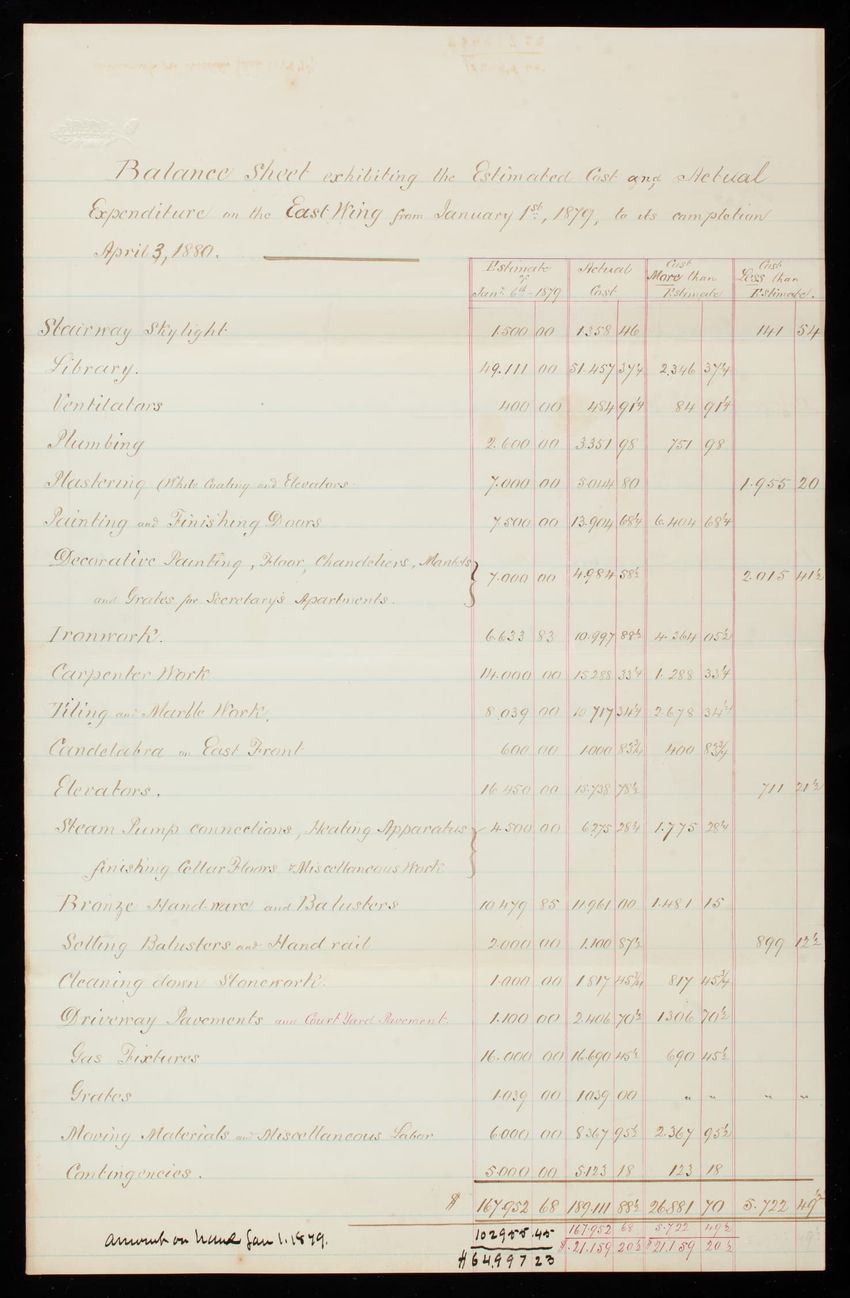 Balance Sheet exhibiting the Estimated Cost and Actual
Expenditure on the East Wing from January 1st, 1879, to its completion
April 3, 1880.
Estimate of Jany 6th 1879 | Actual Cost | Cost More than Estimate | Cost Less than Estimate.
Stairway Skylight 1.500 00 1358 46 141 54
Library. 49.111 00 51.457 37¼ 2,346 37¼
Ventilators 400 00 484 91¼ 84 91¼
Plumbing 2.600 00 3.351 98 751 98
Plastering (White Coating and Elevators 7.000 00 5.044 80 1.955 20
Painting and Finishing Doors 7.500 00 13.904 68¼ 6.404 68¼
Decorative Painting, Floor, Chandeliers, Mantels
and Grates for Secretary's Apartments. 7.000 00 4.984 58½ 2.015 41½
Ironwork. 6.633 83 10.997 88½ 4.364 05½
Carpenter Work 14.000 00 15.288 33¼ 1.288 33¼
Tiling and Marble Work. 8.039 00 10 717 34¼ 2.678 34¼
Candelabra on East Front 600 00 1000 83¾ 400 83¾
Elevators. 16.450 00 15.738 78½ 711 21½
Steam Pump connections, Heating Apparatus 4.500 00 6.275 28¼ 1.775 28¼
finishing Cellar Floors & Miscellaneous Work
Bronze Hand-ware and Balusters 10.479 85 11.961 00 1.481 15
Setting Balusters and Hand rail 2.000 00 1.100 87½ 899 12½
Cleaning down Stonework. 1.000 00 1.817 45¾ 817 45¾
Driveway Pavements and Court Yard Pavement 1.100 00 2.406 70½ 1306 70½
Gas Fixtures 16.000 00 16.690 45½ 690 45½
Grates 1.039 00 1039 00 " " " "
Moving Materials and Miscellaneous Labor 6.000 00 8367 95½ 2.367 95½
Contingencies. 5.000 00 5.123 18 123 18
$ 167.952 68 189.111 88½ 26.881 70 5.722 49½
Amount on hand Jan 1. 1879. 102955.45 167.952 68 5.722 49½
$64,997 23 $.21.159 20½ $21.159 20½